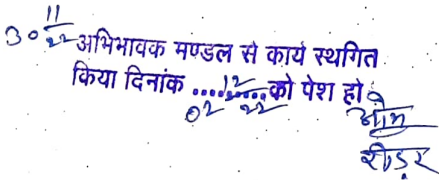 30 11/22 अभिभावक मण्डल से कार्य स्थगित
किया दिनांक ....02 12/22....को पेश हो।
रीडर